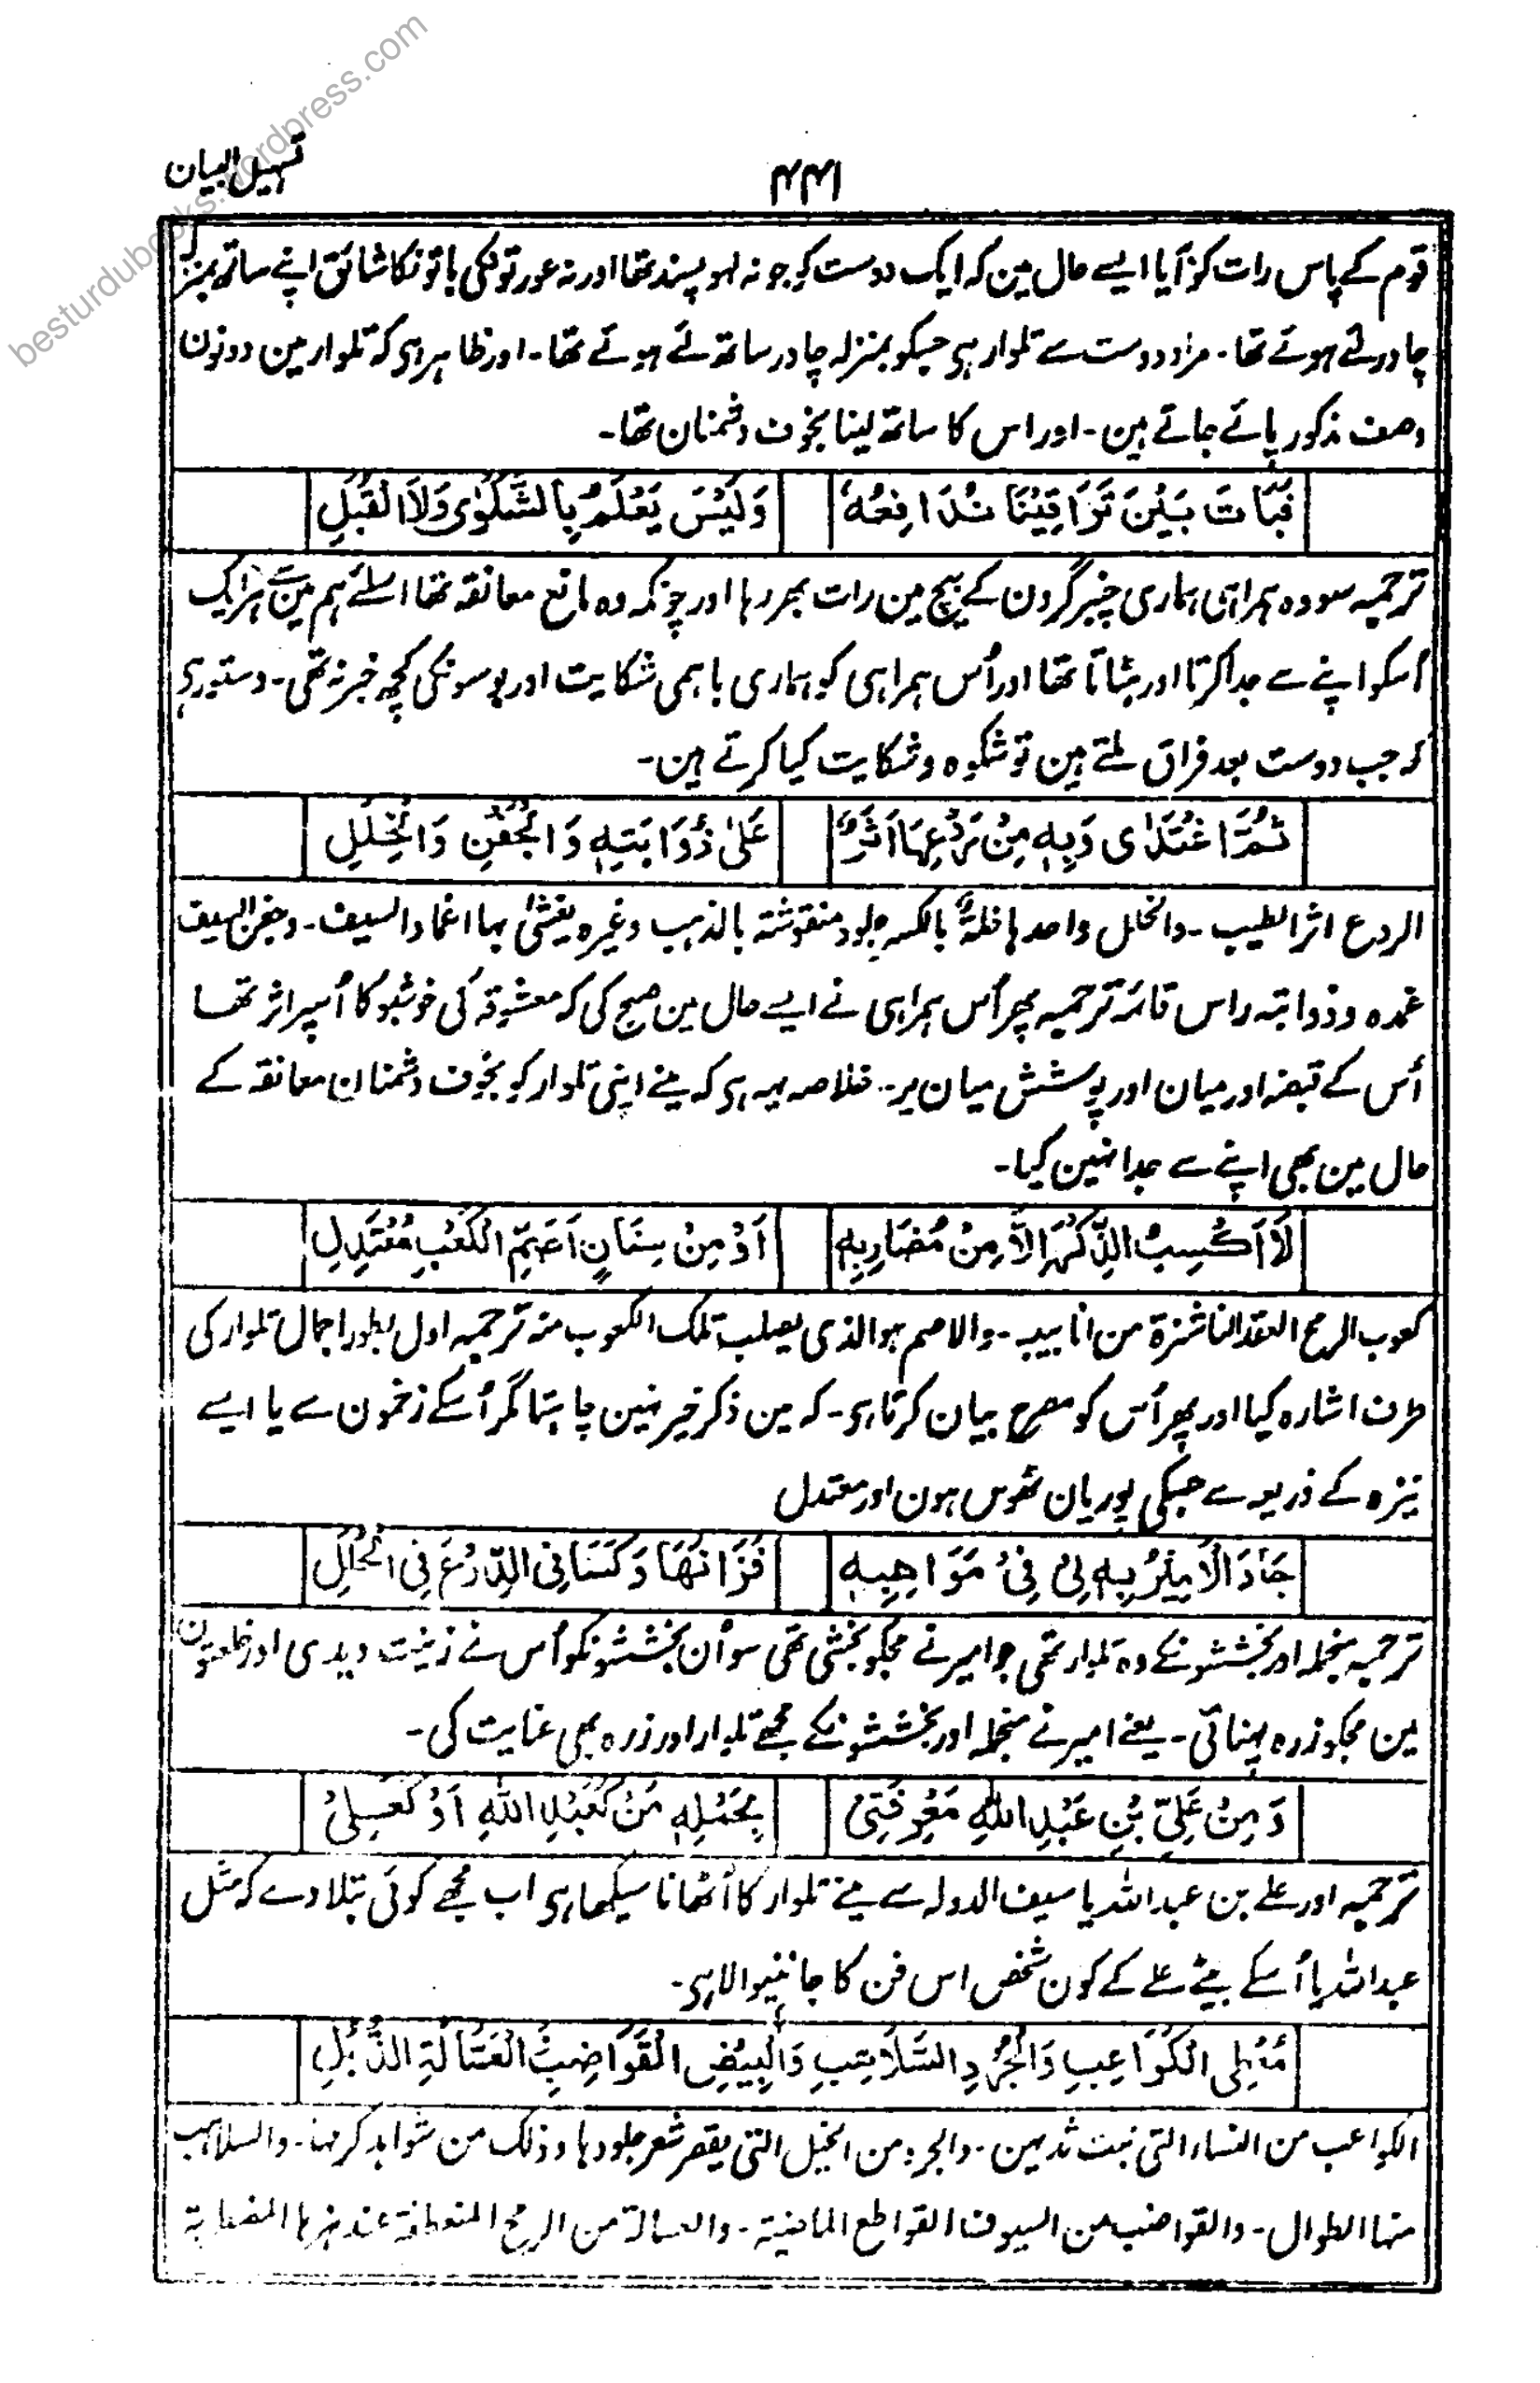 besturdubooks.wordpress.com
تسہیل البیان
۴۴۱
قوم کے پاس رات کو آیا ایسے حال مین کہ ایک دوست کو جو نہ لہو پسند تھا اور نہ عورتونکی باتونکا شائق اپنے ساتھ بمنزلہ
چادر لئے ہوئے تھا۔ مراد دوست سے تلوار ہی جسکو بمنزلہ چادر ساتھ لئے ہوئے تھا۔ اور ظاہر ہی کہ تلوار مین دونون
وصف مذکور پائے جاتے ہین۔ اور اس کا ساتھ لینا بخوف دشمنان تھا۔
فَبَاتَ بَيْنَ تَرَاقِيْنَا نُدَافِعُهٗ وَلَيْسَ يَعْلَمُ بِالشَّكْوٰى وَلَا الْقُبَلِ
ترجمہ سو وہ ہمراہی ہماری چنبر گردن کے بیچ مین رات بھر رہا اور چونکہ وہ مانع معانقہ تھا اسلئے ہم مین سے ہر ایک
اُسکو اپنے سے جدا کرتا اور ہٹاتا تھا اور اُس ہمراہی کو ہماری باہمی شکایت اور بوسونکی کچھ خبر نہ تھی۔ دستور ہی
کہ جب دوست بعد فراق ملتے ہین تو شکوہ و شکایت کیا کرتے ہین۔
ثُمَّ اغْتَدٰى وَبِهٖ مِنْ رَدْعِهَا اَثَرٌ عَلٰى ذُؤَابَتِهٖ وَالْجَفْنِ وَالْخِلَلِ
الردع اثر الطیب۔ والخلل واحدہا خلۃٌ بالکسر جلود منقوشتہ بالذہب وغیرہ یغشیٰ بہا اغماد السیف۔ وجفن السیف
غمدہ وذوابتہ راس قائمہ ترجمہ پھر اُس ہمراہی نے ایسے حال مین صبح کی کہ معشوقہ کی خوشبو کا اُسپر اثر تھا
اُس کے قبضہ اور میان اور پوشش میان پر۔ خلاصہ یہہ ہی کہ مینے اپنی تلوار کو بخوف دشمنان معانقہ کے
حال مین بھی اپنے سے جدا نہین کیا۔
لَا اَكْسِبُ الذِّكْرَ اِلَّا مِنْ مَضَارِبِهٖ اَوْ مِنْ سِنَانٍ اَصَمِّ الْكَعْبِ مُعْتَدِلِ
کعوب الرمح العقد الناشزۃ من انابیبہ۔ والاصم ہو الذی یصلب تلک الکعوب منہ ترجمہ اول بطور اجمال تلوار کی
طرف اشارہ کیا اور پھر اُس کو مصرح بیان کرتا ہی۔ کہ مین ذکر خیر نہین چاہتا مگر اُسکے زخمون سے یا ایسے
نیزہ کے ذریعہ سے جسکی پوریان ٹھوس ہون اور معتدل
جَادَ الْاَمِيْرُ بِهٖ لِيْ فِيْ مَوَاهِبِهٖ فَزَانَهَا وَكَسَانِي الدِّرْعَ فِي الْحُلَلِ
ترجمہ منجملہ اور بخششونکے وہ تلوار تھی جو امیر نے مجکو بخشی تھی سو اُن بخششونکو اُس نے زینت دیدی اور خلعتون
مین مجکو زرہ پہنائی۔ یعنے امیر نے منجملہ اور بخششونکے مجھے تلوار اور زرہ بھی عنایت کی۔
وَمِنْ عَلِيِّ بْنِ عَبْدِ اللّٰهِ مَعْرِفَتِيْ بِحَمْلِهٖ مَنْ كَعَبْدِ اللّٰهِ اَوْ كَعَلِيْ
ترجمہ اور علے بن عبد اللہ یا سیف الدولہ سے مینے تلوار کا اُٹھانا سیکھا ہی اب مجھے کوئی بتلا دے کہ مثل
عبد اللہ یا اُسکے بیٹے علے کے کون شخص اس فن کا جاننیوالا ہی۔
مُعْطِي الْكَوَاعِبِ وَالْجُرْدِ السَّلَاهِبِ وَالْبِيْضِ الْقَوَاضِبِ الْعَسَّالَةِ الذُّبُلِ
الکواعب من النساء التی نبت ثدیہن۔ والجرد من الخیل التی یقصر شعر جلودہا وذلک من شواہد کرمہا۔ والسلاہب
منہا الطوال۔ والقواضب من السیوف القواطع الماضیۃ۔ والعسالۃ من الرمح المنعطفۃ عند ہزہا المضطربۃ